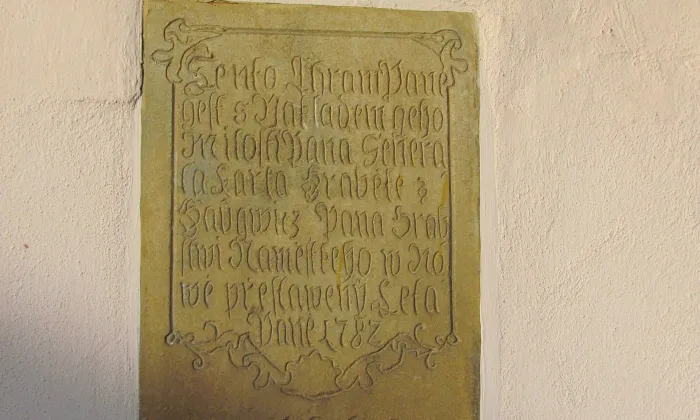 Tento Chram Pane
gest s Nakladem geho
Milosti Pana Genera
la Karla Hraběte z
Haugwicz Pana Hrab
stwi Namesstského w No
wě přestawený Leta
Paně 1782